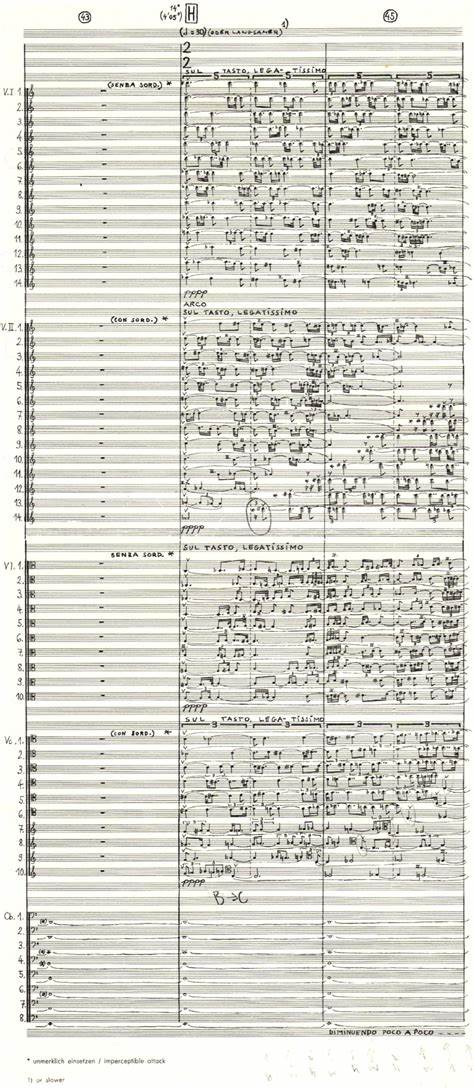 43 14" (4'05") H 45
(♩=30) (ODER LANGSAMER) 1)
2
2
SUL TASTO, LEGATISSIMO
5 5 5 5
V.I 1. (SENZA SORD.) *
2.
3.
4.
5.
6.
7.
8.
9.
10.
11.
12.
13.
14.
pppp
ARCO
SUL TASTO, LEGATISSIMO
V.II. 1. (CON SORD.) *
2.
3.
4.
5.
6.
7.
8.
9.
10.
11.
12.
13.
14.
pppp
SENZA SORD. * SUL TASTO, LEGATISSIMO
Vl. 1.
2.
3.
4.
5.
6.
7.
8.
9.
10.
pppp
SUL TASTO, LEGA-TISSIMO
3 3 3 3
Vc. 1. (CON SORD.) *
2.
3.
4.
5.
6.
7.
8.
9.
10.
pppp
B→C
Cb. 1.
2.
3.
4.
5.
6.
7.
8.
DIMINUENDO POCO A POCO
* unmerklich einsetzen / imperceptible attack
1) or slower